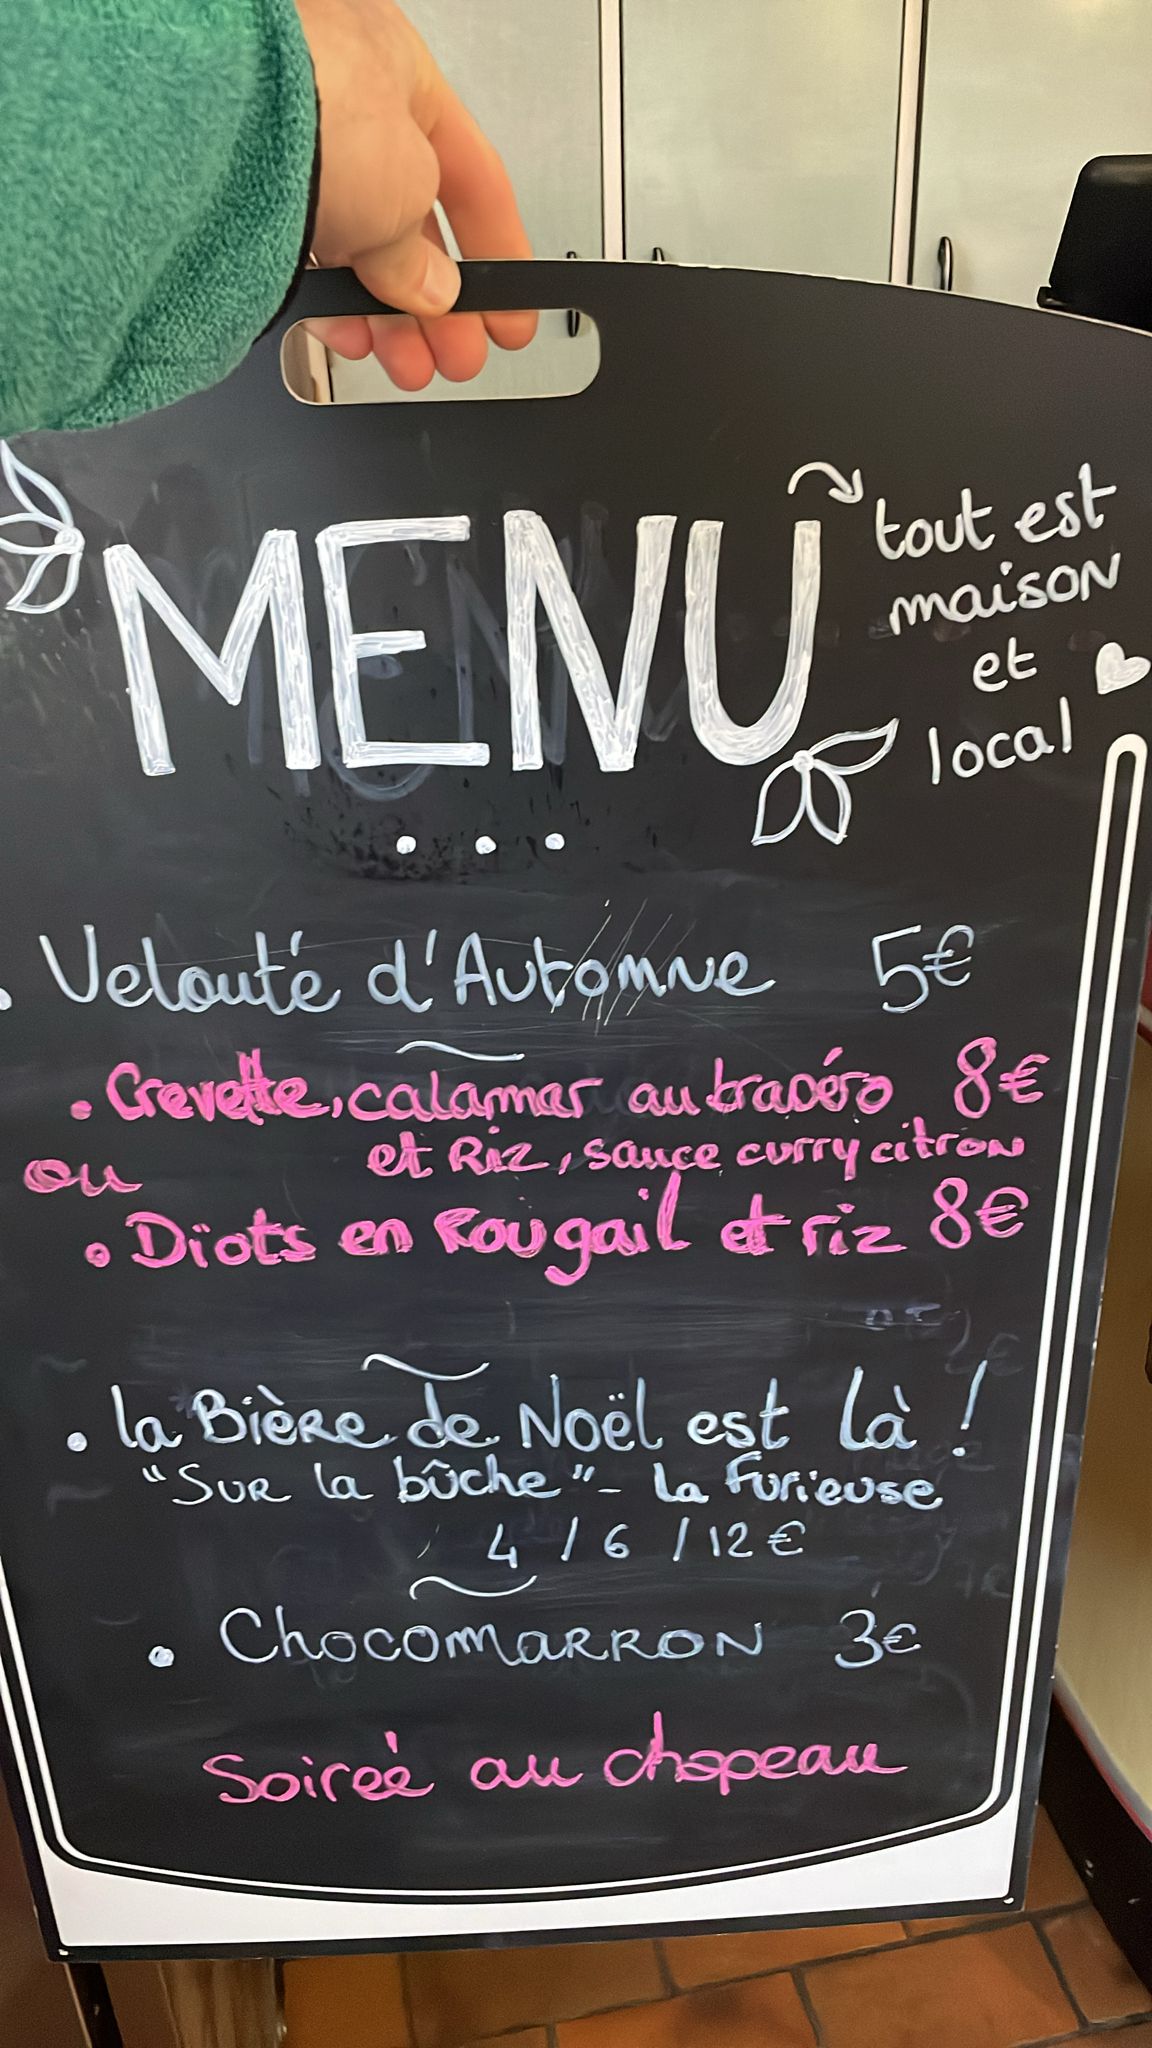 MENU
tout est
maison
et
local
. Velouté d'Automne 5€
• Crevette, calamar au brasero 8€
et Riz, sauce curry citron
ou
• Diots en Rougail et riz 8€
• la Bière de Noël est là !
"Sur la bûche" - La Furieuse
4 / 6 / 12€
• Chocomarron 3€
Soirée au chapeau